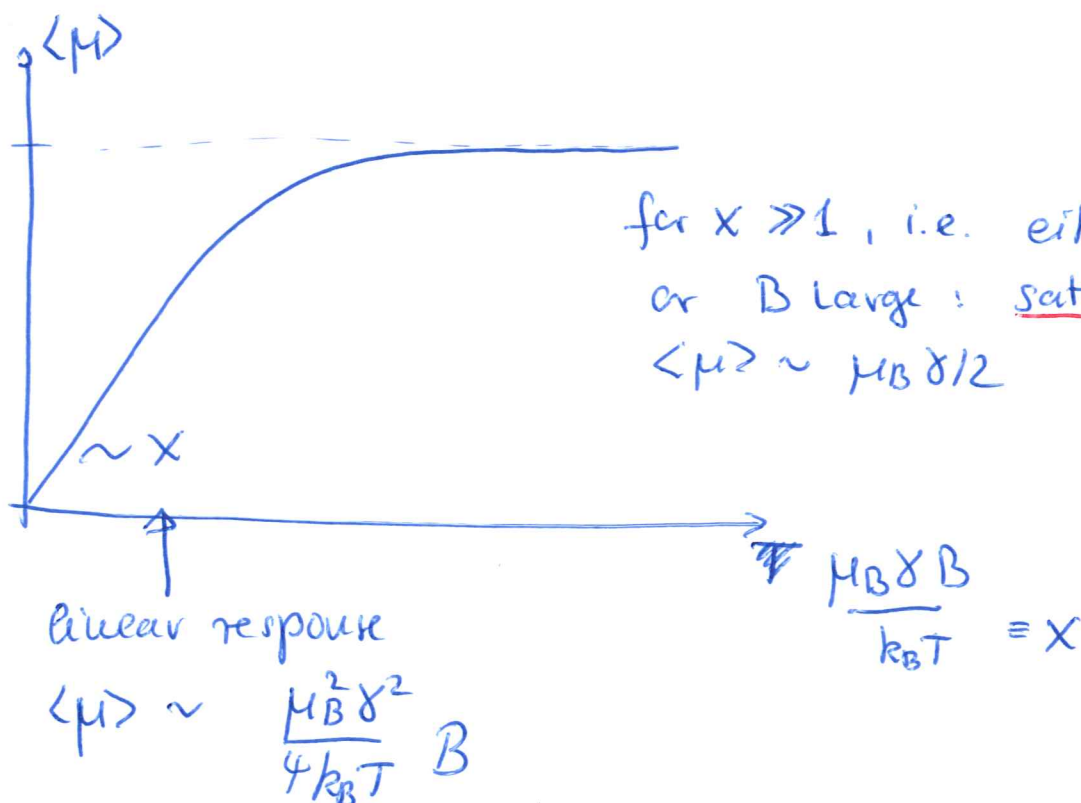 <μ>
for x ≫ 1, i.e. eit
or B large : sat
<μ> ~ μ_B γ/2
~ x
μ_B γ B / k_B T ≡ x
linear response
<μ> ~ μ_B² γ² / 4 k_B T B